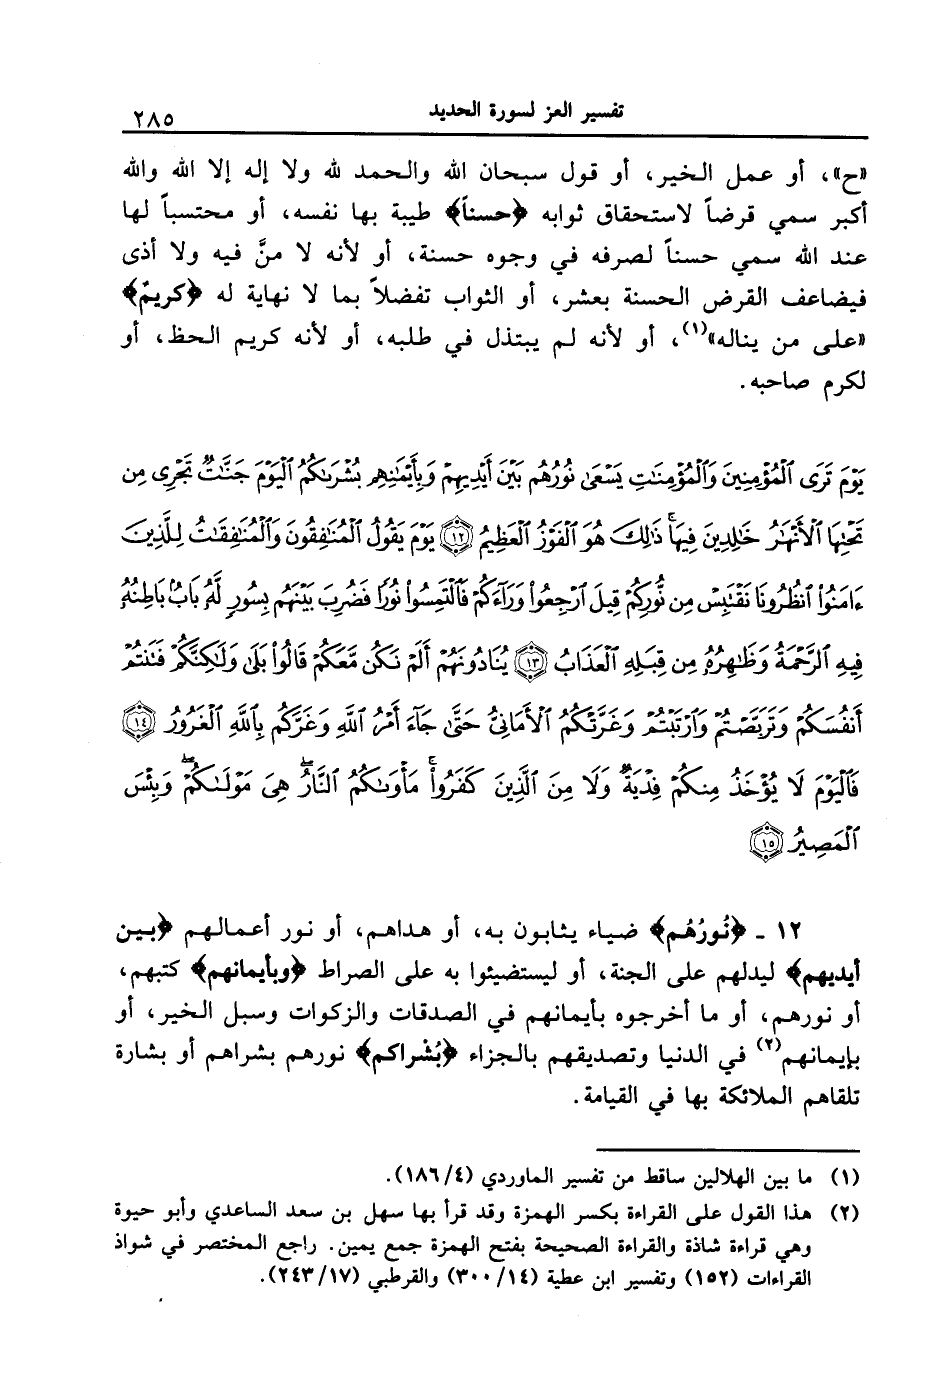 تفسير العز لسورة الحديد
٢٨٥
«ح»، أو عمل الخير، أو قول سبحان الله والحمد لله ولا إله إلا الله والله
أكبر سمي قرضاً لاستحقاق ثوابه ﴿حسناً﴾ طيبة بها نفسه، أو محتسباً لها
عند الله سمي حسناً لصرفه في وجوه حسنة، أو لأنه لا منَّ فيه ولا أذى
فيضاعف القرض الحسنة بعشر، أو الثواب تفضلاً بما لا نهاية له ﴿كريمٌ﴾
«على من يناله»(١)، أو لأنه لم يبتذل في طلبه، أو لأنه كريم الحظ، أو
لكرم صاحبه.
يَوْمَ تَرَى ٱلْمُؤْمِنِينَ وَٱلْمُؤْمِنَٰتِ يَسْعَىٰ نُورُهُم بَيْنَ أَيْدِيهِمْ وَبِأَيْمَٰنِهِم بُشْرَىٰكُمُ ٱلْيَوْمَ جَنَّٰتٌ تَجْرِى مِن
تَحْتِهَا ٱلْأَنْهَٰرُ خَٰلِدِينَ فِيهَا ۚ ذَٰلِكَ هُوَ ٱلْفَوْزُ ٱلْعَظِيمُ ﴿١٢﴾ يَوْمَ يَقُولُ ٱلْمُنَٰفِقُونَ وَٱلْمُنَٰفِقَٰتُ لِلَّذِينَ
ءَامَنُوا۟ ٱنظُرُونَا نَقْتَبِسْ مِن نُّورِكُمْ قِيلَ ٱرْجِعُوا۟ وَرَآءَكُمْ فَٱلْتَمِسُوا۟ نُورًا فَضُرِبَ بَيْنَهُم بِسُورٍ لَّهُۥ بَابٌۢ بَاطِنُهُۥ
فِيهِ ٱلرَّحْمَةُ وَظَٰهِرُهُۥ مِن قِبَلِهِ ٱلْعَذَابُ ﴿١٣﴾ يُنَادُونَهُمْ أَلَمْ نَكُن مَّعَكُمْ قَالُوا۟ بَلَىٰ وَلَٰكِنَّكُمْ فَتَنتُمْ
أَنفُسَكُمْ وَتَرَبَّصْتُمْ وَٱرْتَبْتُمْ وَغَرَّتْكُمُ ٱلْأَمَانِىُّ حَتَّىٰ جَآءَ أَمْرُ ٱللَّهِ وَغَرَّكُم بِٱللَّهِ ٱلْغَرُورُ ﴿١٤﴾
فَٱلْيَوْمَ لَا يُؤْخَذُ مِنكُمْ فِدْيَةٌ وَلَا مِنَ ٱلَّذِينَ كَفَرُوا۟ ۚ مَأْوَىٰكُمُ ٱلنَّارُ ۖ هِىَ مَوْلَىٰكُمْ ۖ وَبِئْسَ
ٱلْمَصِيرُ ﴿١٥﴾
١٢ ـ ﴿نُورُهُم﴾ ضياء يثابون به، أو هداهم، أو نور أعمالهم ﴿بين
أيديهم﴾ ليدلهم على الجنة، أو ليستضيئوا به على الصراط ﴿وبأيمانهم﴾ كتبهم،
أو نورهم، أو ما أخرجوه بأيمانهم في الصدقات والزكوات وسبل الخير، أو
بإيمانهم(٢) في الدنيا وتصديقهم بالجزاء ﴿بُشْراكم﴾ نورهم بشراهم أو بشارة
تلقاهم الملائكة بها في القيامة.
(١) ما بين الهلالين ساقط من تفسير الماوردي (٤/١٨٦).
(٢) هذا القول على القراءة بكسر الهمزة وقد قرأ بها سهل بن سعد الساعدي وأبو حيوة
وهي قراءة شاذة والقراءة الصحيحة بفتح الهمزة جمع يمين. راجع المختصر في شواذ
القراءات (١٥٢) وتفسير ابن عطية (١٤/٣٠٠) والقرطبي (١٧/٢٤٣).